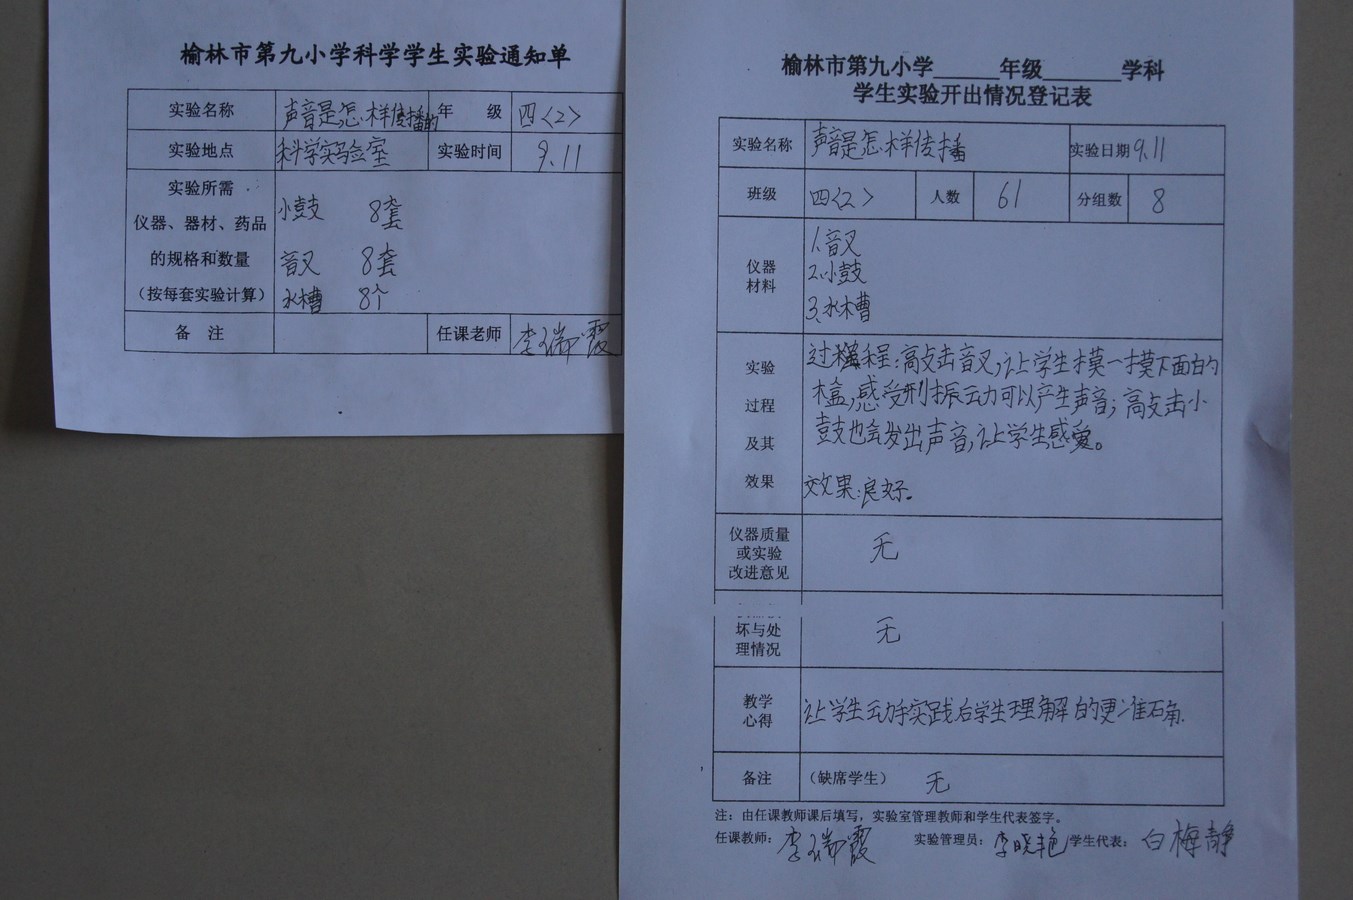 榆林市第九小学科学学生实验通知单
实验名称 声音是怎样传播的 年 级 四<2>
实验地点 科学实验室 实验时间 9.11
实验所需
仪器、器材、药品
的规格和数量
（按每套实验计算）
小鼓 8套
音叉 8套
水槽 8个
备 注 任课老师 李瑞霞
榆林市第九小学______年级_______学科
学生实验开出情况登记表
实验名称 声音是怎样传播 实验日期 9.11
班级 四<2> 人数 61 分组数 8
仪器
材料
1.音叉
2.小鼓
3.水槽
实验
过程
及其
效果
过程:高敲击音叉,让学生摸一摸下面的
木盒,感受到振动可以产生声音;高敲击小
鼓也会发出声音,让学生感受。
效果:良好。
仪器质量
或实验
改进意见
无
坏与处
理情况
无
教学
心得
让学生动手实践后学生理解的更准确.
备注 （缺席学生） 无
注：由任课教师课后填写，实验室管理教师和学生代表签字。
任课教师： 李瑞霞 实验管理员： 李晓艳 学生代表： 白梅静